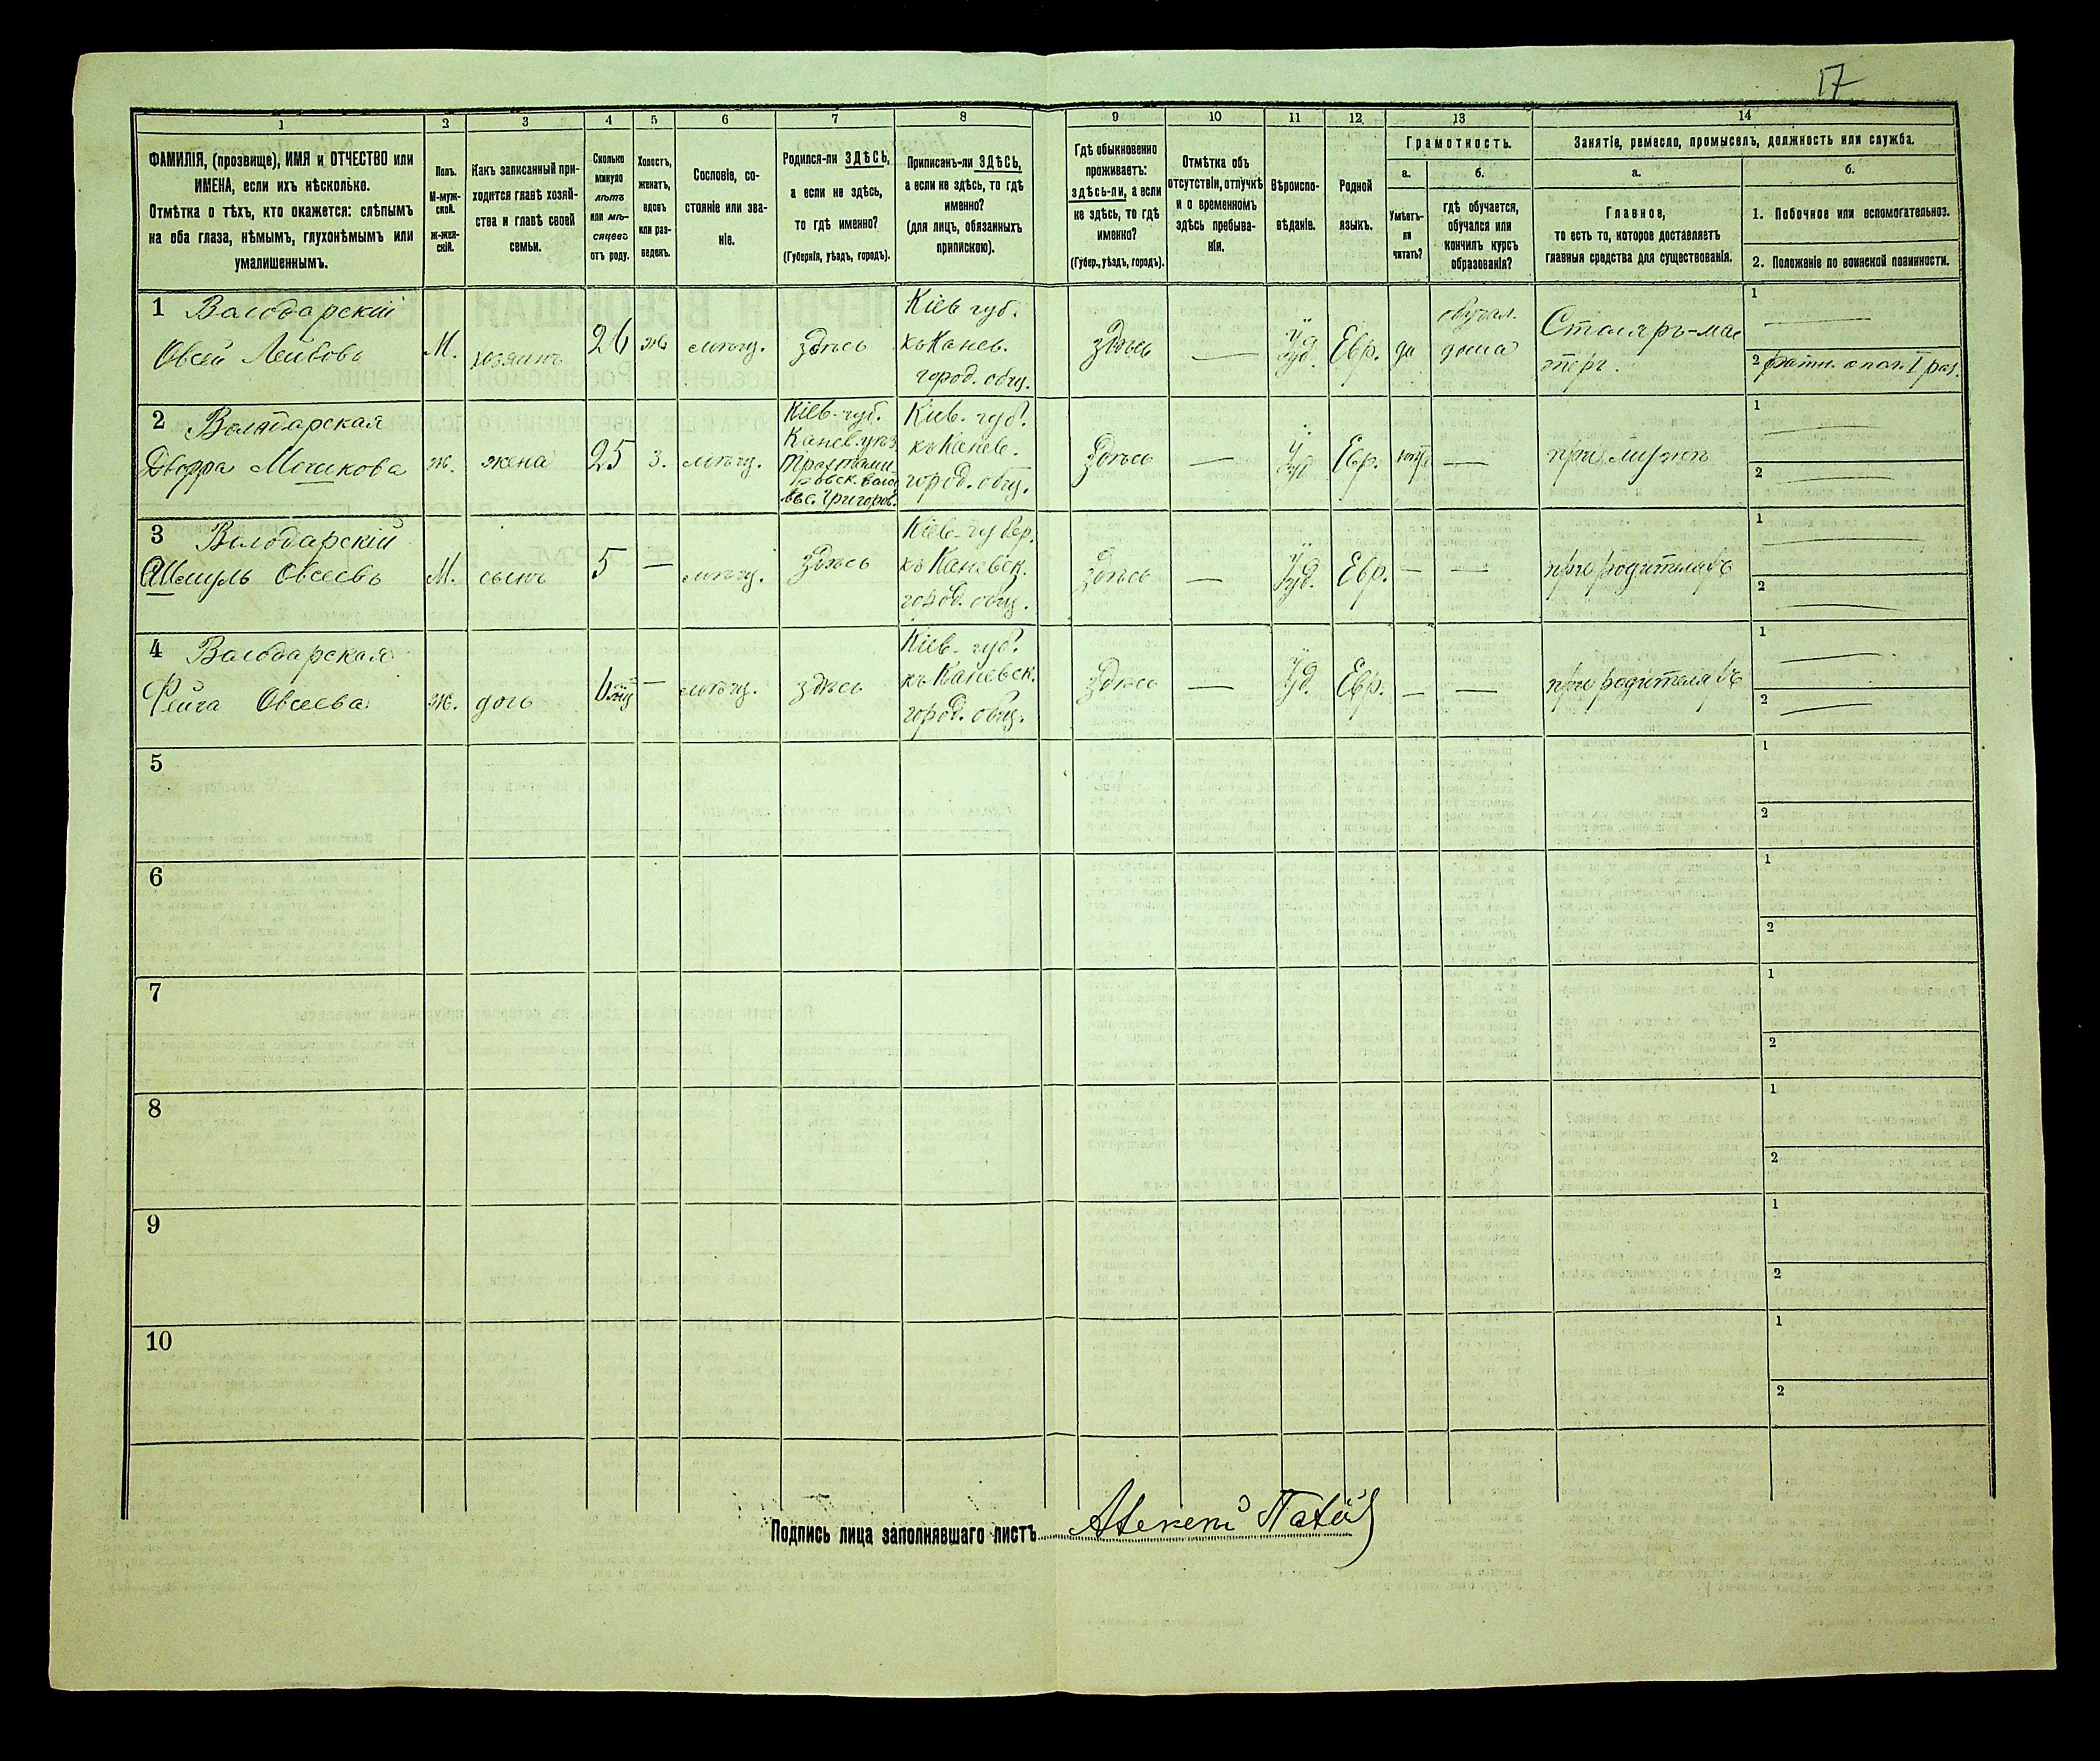 17
1 2 3 4 5 6 7 8 9 10 11 12 13 14
ФАМИЛІЯ, (прозвище), ИМЯ и ОТЧЕСТВО или
ИМЕНА, если ихъ нѣсколько.
Отмѣтка о тѣхъ, кто окажется: слѣпымъ
на оба глаза, нѣмымъ, глухонѣмымъ или
умалишеннымъ.
Полъ.
М-муж-
ской.
Ж-жен-
скій.
Какъ записанный при-
ходится главѣ хозяй-
ства и главѣ своей
семьи.
Сколько
минуло
лѣтъ
или мѣ-
сяцевъ
отъ роду.
Холостъ,
женатъ,
вдовъ
или раз-
веденъ.
Сословіе, со-
стояніе или зва-
ніе.
Родился-ли ЗДѢСЬ,
а если не здѣсь,
то гдѣ именно?
(Губернія, уѣздъ, городъ).
Приписанъ-ли ЗДѢСЬ,
а если не здѣсь, то гдѣ
именно?
(для лицъ, обязанныхъ
припискою).
Гдѣ обыкновенно
проживаетъ:
здѣсь-ли, а если
не здѣсь, то гдѣ
именно?
(Губер., уѣздъ, городъ).
Отмѣтка объ
отсутствіи, отлучкѣ
и о временномъ
здѣсь пребыва-
ніи.
Вѣроиспо-
вѣданіе.
Родной
языкъ.
Грамотность.
а.
Умѣетъ-
ли
читать?
б.
гдѣ обучается,
обучался или
кончилъ курсъ
образованія?
Занятіе, ремесло, промыселъ, должность или служба.
а.
Главное,
то есть то, которое доставляетъ
главныя средства для существованія.
б.
1. Побочное или вспомогательноз.
2. Положеніе по воинской повинности.
1 Володарскій
Овсѣй Лейбовъ
М.
хозяинъ
26
ж
мѣщ.
здѣсь
Кіев губ.
къ Канев.
город. общ.
здѣсь
—
Іуд.
Евр.
да
обучал.
дома
Столяръ-мас
теръ.
1 —
2 ратн. опол. I раз.
2 Володарская
Двойра Мошкова
ж.
жена
25
з.
мѣщ.
Кіев. губ.
Канев. уѣз.
Трахтеми-
ровск. воло
въ с. Григоров.
Кіев. губ.
къ Канев.
город. общ.
здѣсь
—
Іуд
Евр.
нѣт
—
при мужѣ
1 —
2 —
3 Володарскій
Шмуль Овсеевъ
М.
сынъ
5
—
мѣщ.
здѣсь
Кіев. губер.
къ Каневск.
город. общ.
здѣсь
—
Іуд.
Евр.
—
—
при родителяхъ
1 —
2 —
4 Володарская
Фейга Овсеева
ж.
дочь
—
мѣщ.
здѣсь
Кіев. губ.
къ Каневск.
город. общ.
здѣсь
—
Іуд.
Евр.
—
—
при родителяхъ
1 —
2 —
5
1
2
6
1
2
7
1
2
8
1
2
9
1
2
10
1
2
Подпись лица заполнявшаго листъ